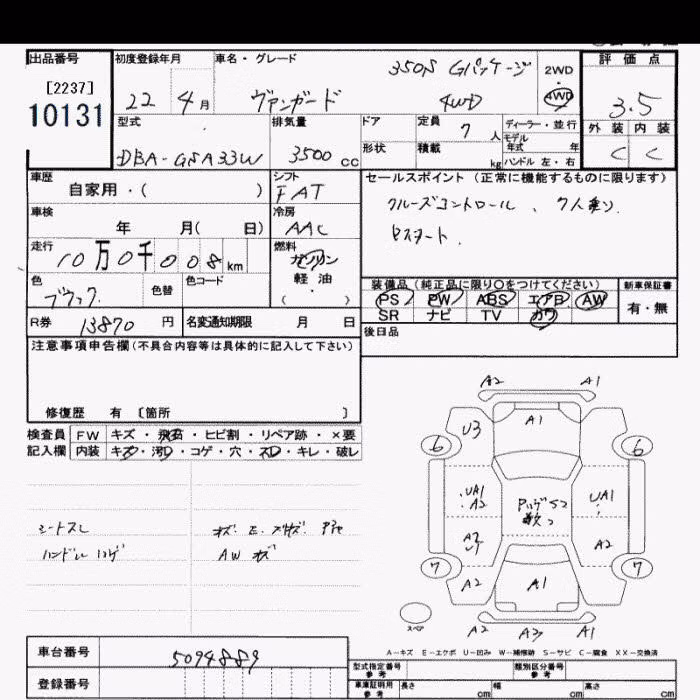 出品番号 初度登録年月 車名・グレード 350S Gパッケージ 2WD 評価点
[2237] 22 4月 ヴァンガード 4WD 4WD 3.5
10131 型式 排気量 ドア 定員 7人 ディーラー・並行 外装 内装
DBA-GSA33W 3500cc 形状 積載 kg モデル年式 年 ハンドル 左・右 C C
車歴 自家用・( ) シフト FAT セールスポイント (正常に機能するものに限ります)
車検 年 月( 日) 冷房 AAC クルーズコントロール、7人乗り
走行 10万0千008km 燃料 ガソリン 軽油 ( )
色 ブラック 色替 色コード 装備品(純正品に限り○をつけてください) 新車保証書
PS PW ABS エアB AW 有・無
SR ナビ TV カワ
R券 13870円 名変通知期限 月 日 後日品
注意事項申告欄(不具合内容等は具体的に記入して下さい)
修復歴 有 〔箇所 〕
検査員 FW キズ・飛石・ヒビ割・リペア跡・×要
記入欄 内装 キズ・汚レ・コゲ・穴・スレ・キレ・破レ
シートスレ
ハンドルハゲ AW キズ
A2 A1
U3 A1
6 6
UA1 A2 UA1
A2 A2
7 7
A2 A1
スペア A2 A3 A1
A-キズ E-エクボ U-凹み W-補修跡 S-サビ C-腐食 XX-交換済
車台番号 5094889
登録番号
型式指定番号 参考 類別区分番号 参考
車庫証明用 参考 長さ cm 幅 cm 高さ cm